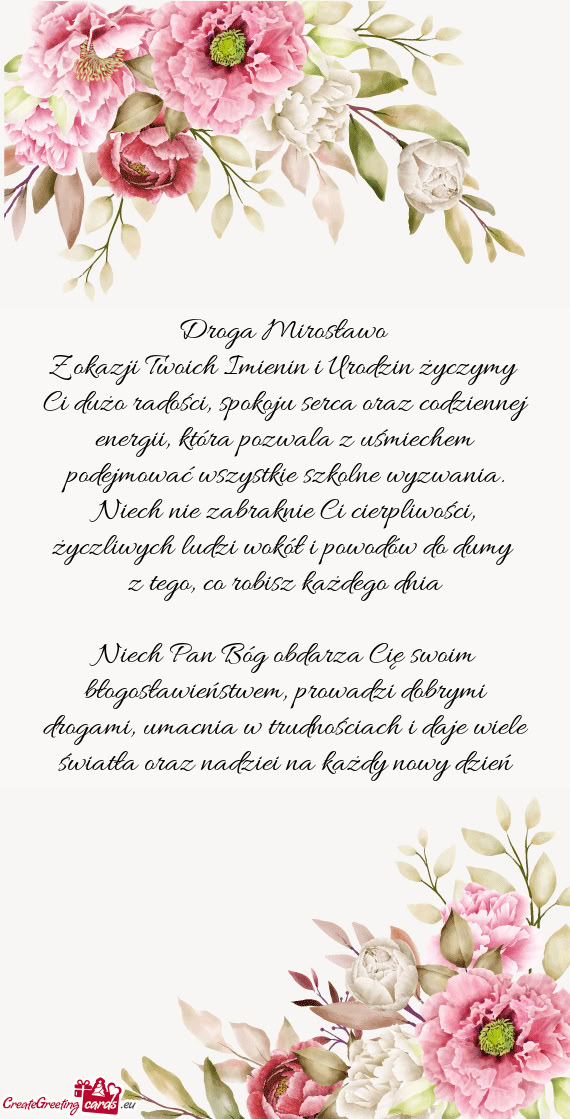 Droga Mirosławo
Z okazji Twoich Imienin i Urodzin życzymy
Ci dużo radości, spokoju serca oraz codziennej
energii, która pozwala z uśmiechem
podejmować wszystkie szkolne wyzwania.
Niech nie zabraknie Ci cierpliwości,
życzliwych ludzi wokół i powodów do dumy
z tego, co robisz każdego dnia
Niech Pan Bóg obdarza Cię swoim
błogosławieństwem, prowadzi dobrymi
drogami, umacnia w trudnościach i daje wiele
światła oraz nadziei na każdy nowy dzień
CreateGreeting cards .eu